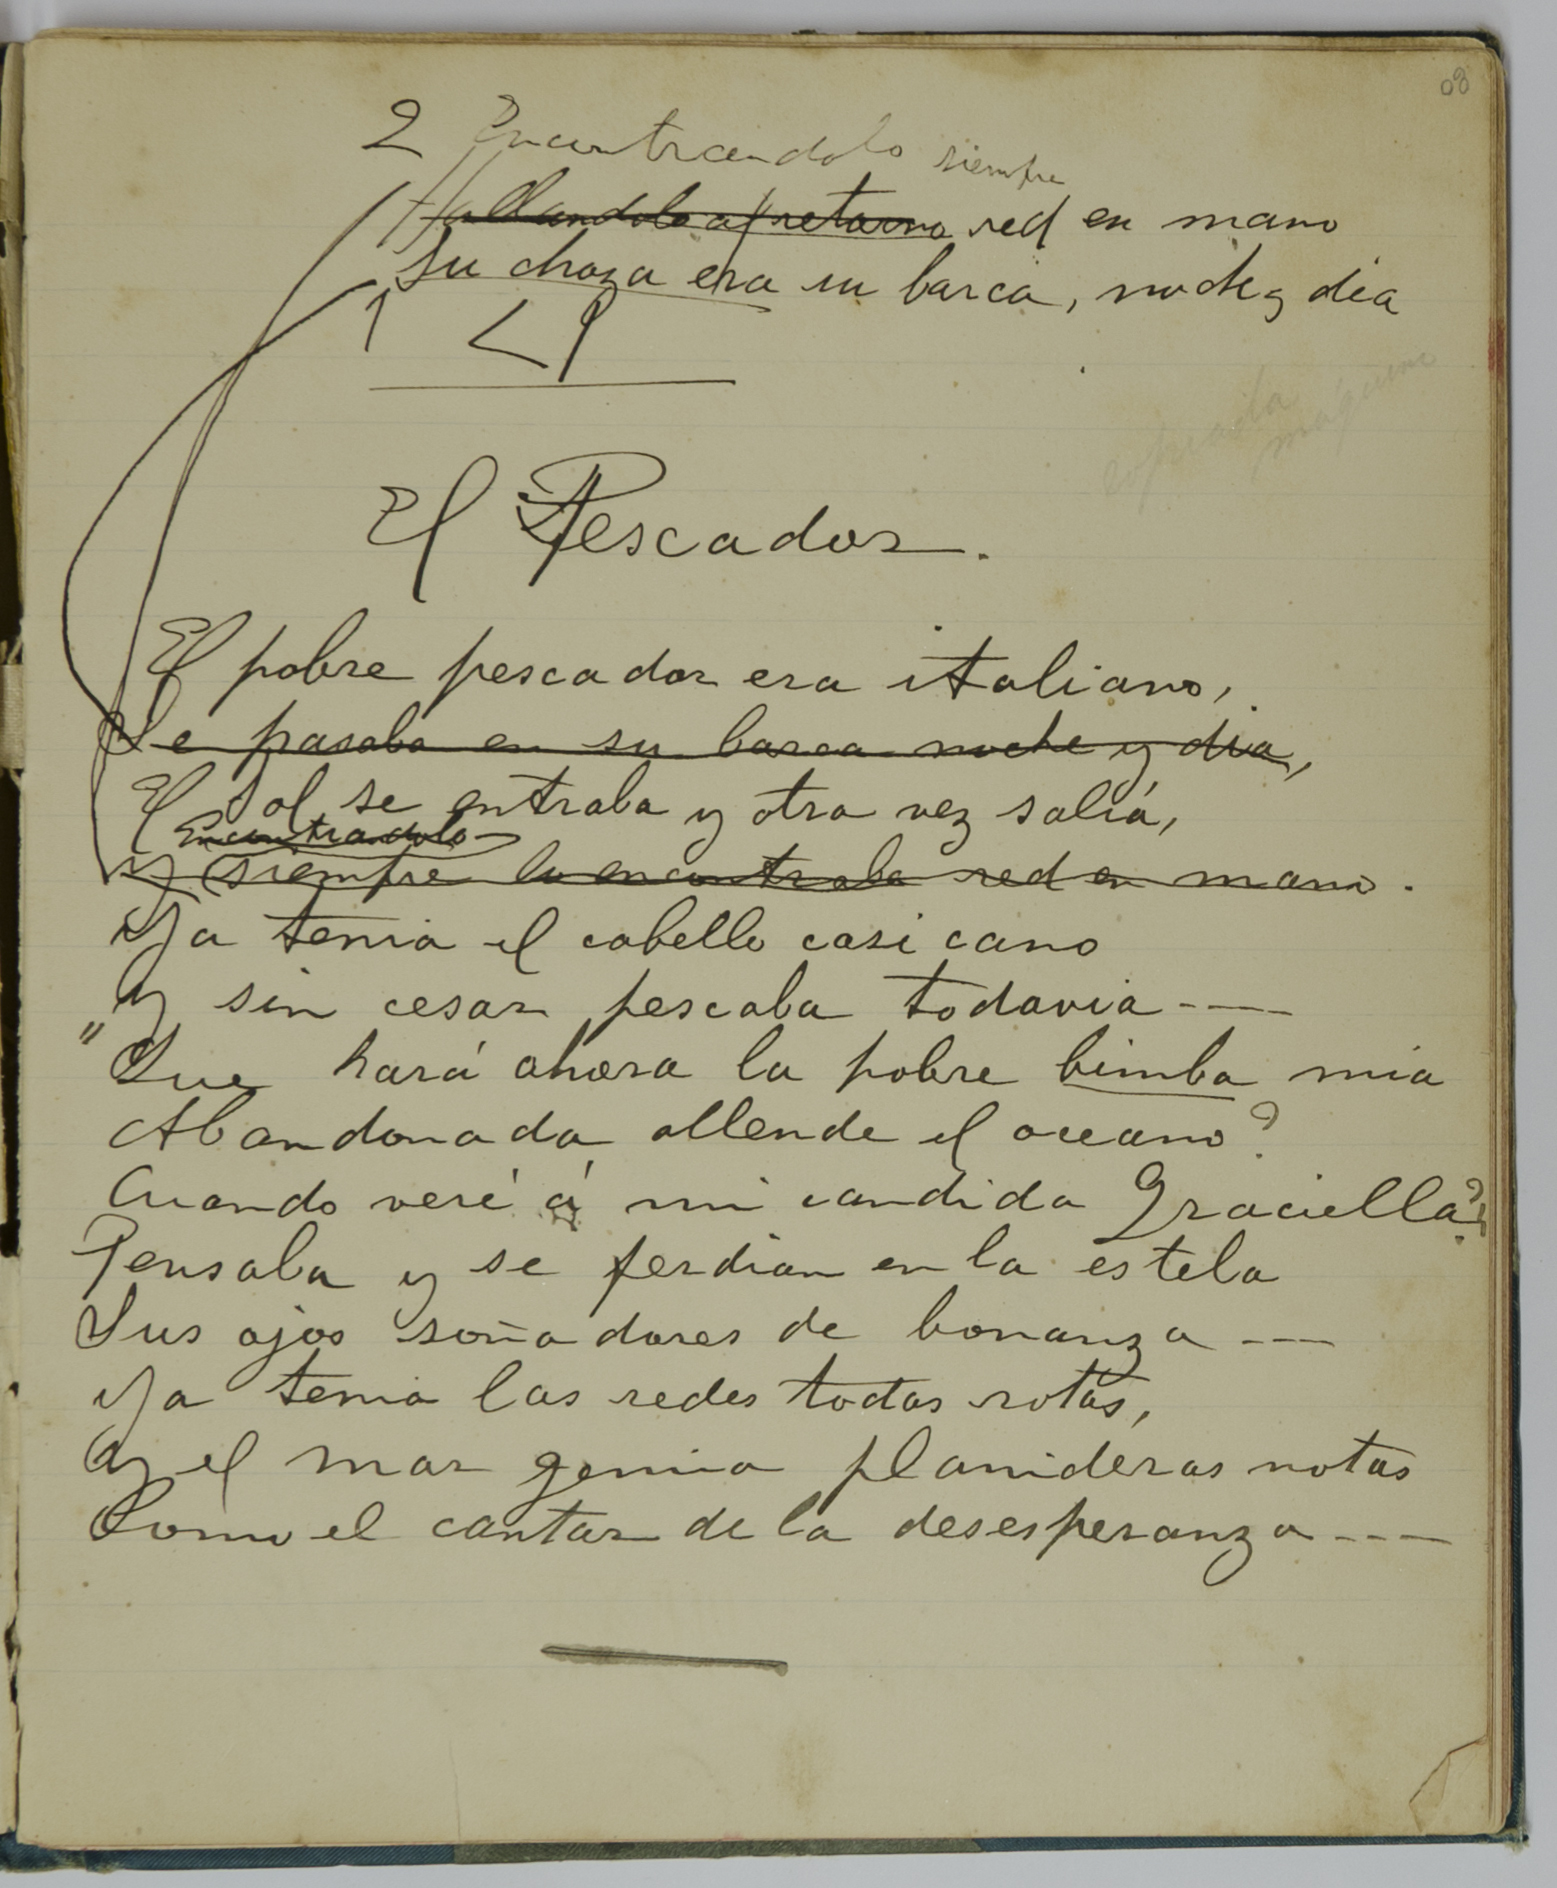 08
2 Encontrandolo siempre
Hallandolo al retorno red en mano
Su choza era su barca, noche y dia
1
copiada
maquina
El Pescador.
El pobre pescador era italiano,
Se pasaba en su barca noche y dia,
El sol se entraba y otra vez salía,
Encontrandolo
Y siempre lo encontraba red en mano.
Ya tenia el cabello casi cano
Y sin cesar pescaba todavia ----
"Que hará ahora la pobre bimba mia
Abandonada allende el oceano?
Cuando veré á mi candida Graciella?
Pensaba y se perdian en la estela
Sus ojos soñadores de bonanza ---
Ya tenia las redes todas rotas,
Y el mar gemia plañideras notas
Como el cantar de la desesperanza ----